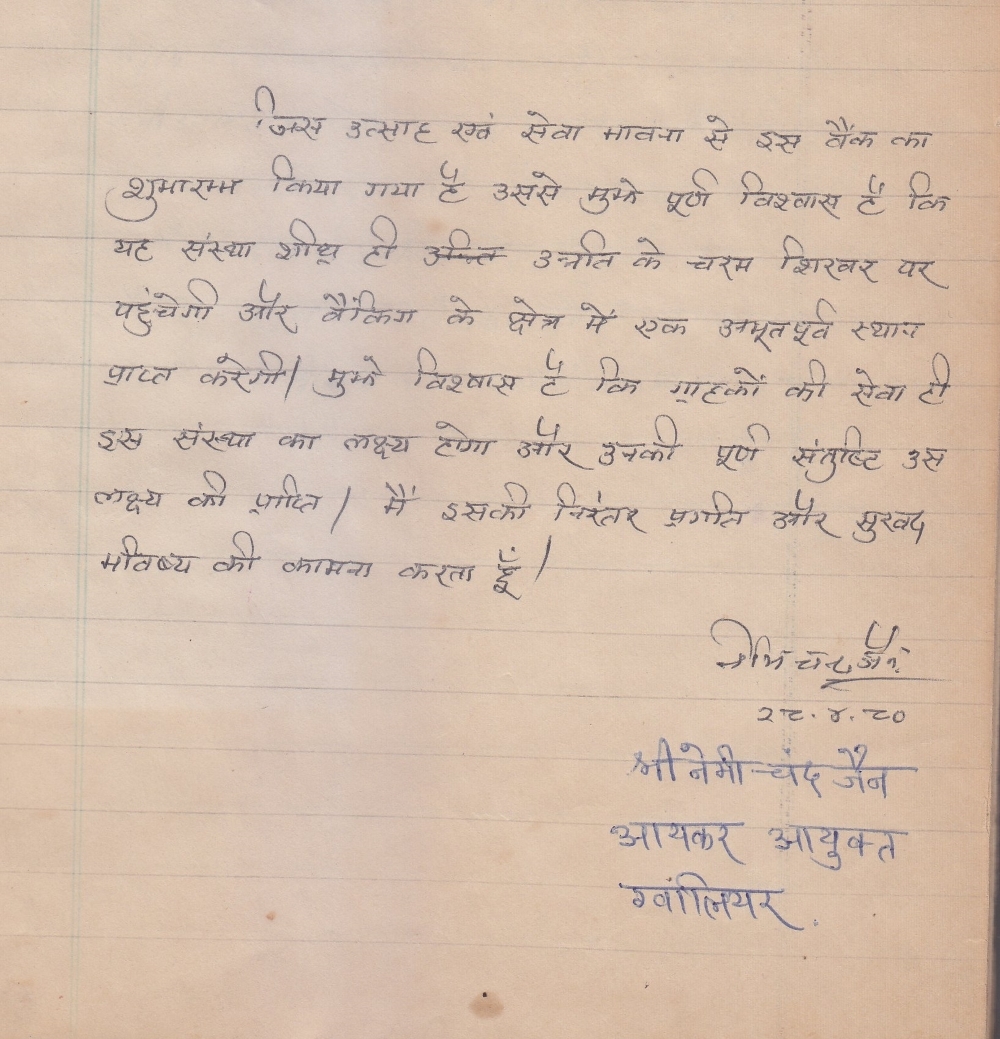 जिस उत्साह एवं सेवा भावना से इस बैंक का
शुभारम्भ किया गया है उससे मुझे पूर्ण विश्वास है कि
यह संस्था शीघ्र ही उन्नति के चरम शिखर पर
पहुंचेगी और बैंकिंग के क्षेत्र में एक अभूतपूर्व स्थान
प्राप्त करेगी। मुझे विश्वास है कि ग्राहकों की सेवा ही
इस संस्था का लक्ष्य होगा और उनकी पूर्ण संतुष्टि उस
लक्ष्य की प्राप्ति। मैं इसकी निरंतर प्रगति और सुखद
भविष्य की कामना करता हूँ।
नेमिचन्द जैन
२८.४.८०
श्री नेमीचंद जैन
आयकर आयुक्त
ग्वालियर.